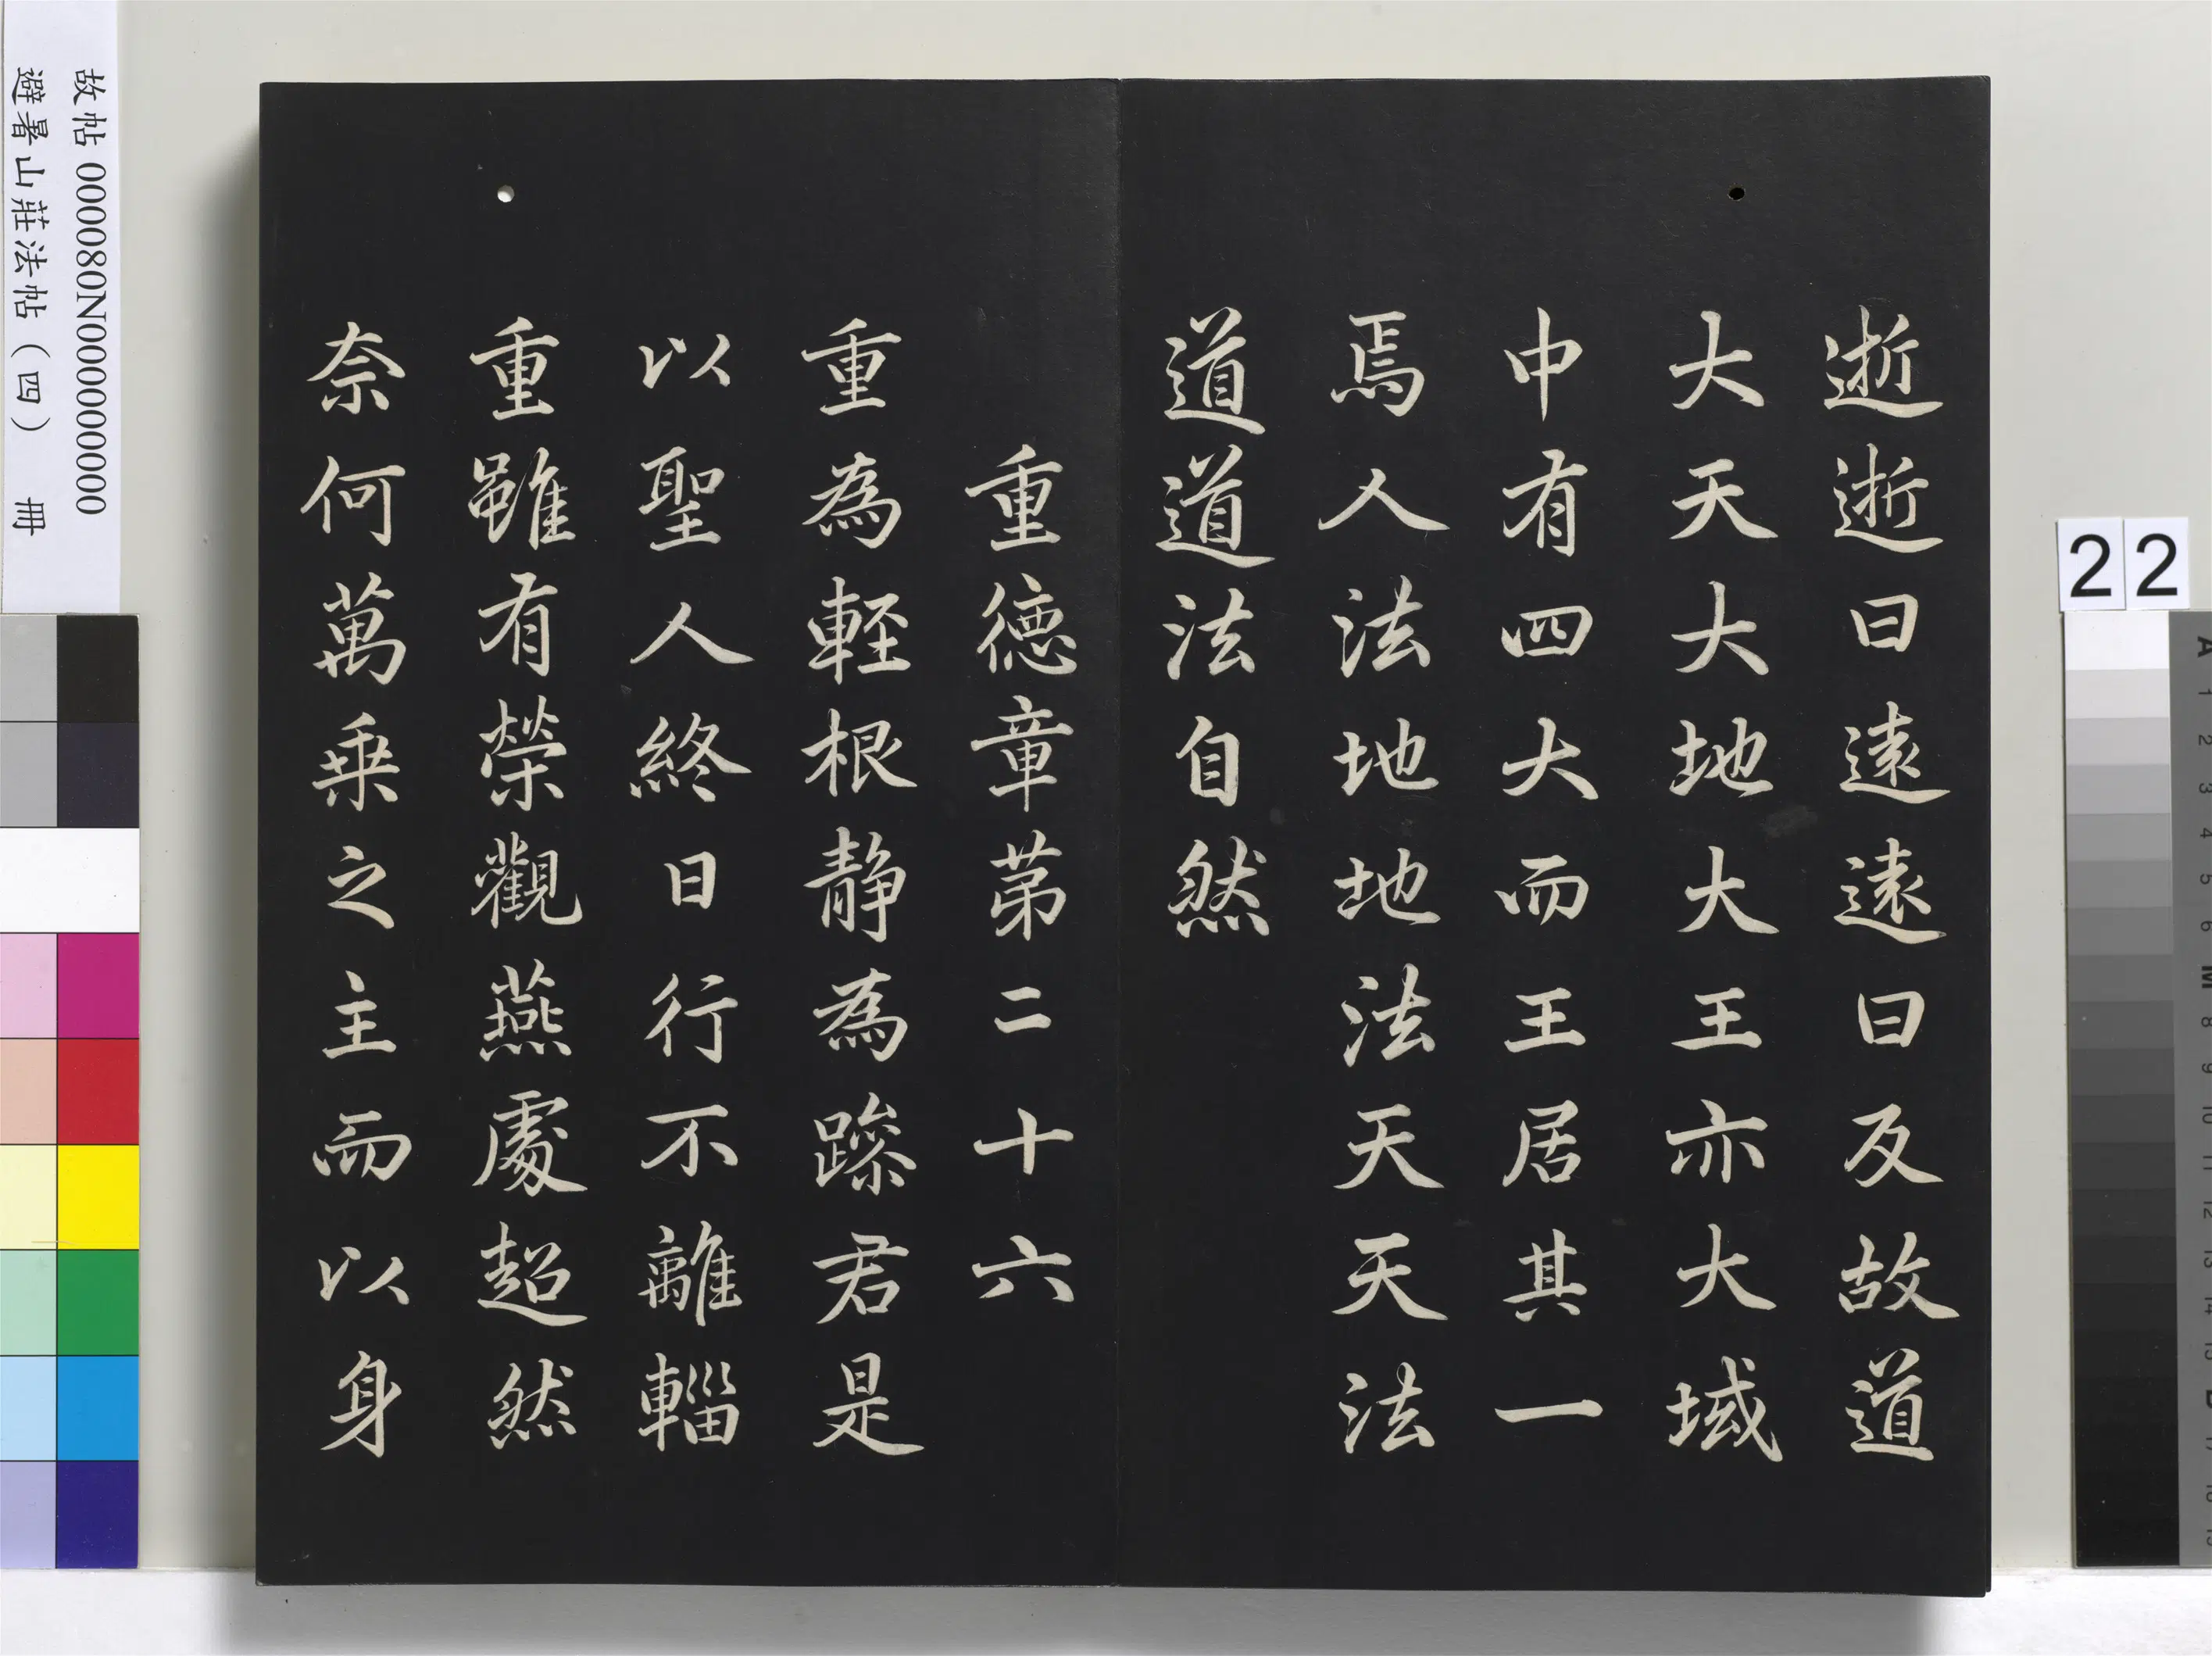 逝逝曰遠遠曰反故道
大天大地大王亦大域
中有四大而王居其一
焉人法地地法天天法
道道法自然
重德章第二十六
重為輕根静為躁君是
以聖人終日行不離輜
重雖有榮觀燕處超然
奈何萬乗之主而以身
故帖 000080N000000000
避暑山莊法帖（四） 冊
22
A 1 2 3 4 5 6 M 8 9 10 11 12 13 14 15 B 17 18 19